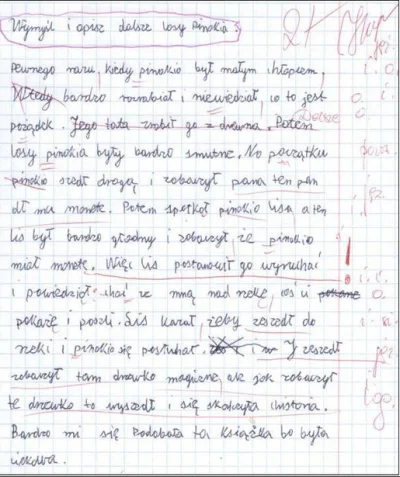 Wymyśl i opisz dalsze losy Pinokia. 2+
Pewnego razu, kiedy pinokio był małym chłopcem, i. o.
Wtedy bardzo rozrabiał i niewiedział, co to jest o. i
pożądek. Jego tata zrobił go z drewna. Potem
losy pinokia były bardzo smutne. No początku
pinokio szedł drogą i zobaczył pana ten pan
dł mu monetę. Potem spotkął pinokio lisa a ten
lis był bardzo głodny i zobaczył, że pinokio
miał monetę. Więc lis postanowił go wyruhać !
i powiedział: choć ze mną nad rzekę, coś ci o.
pokażę i poszli. Lis kazał, żeby zeszedł do
rzeki i pinokio się posłuhał. I zeszedł
zobaczył tam drzewko magiczne, ale jak zobaczył
te drzewko to wyszedł i się skończyła chistoria. log.
Bardzo mi się podobała ta książka bo była
ciekawa.